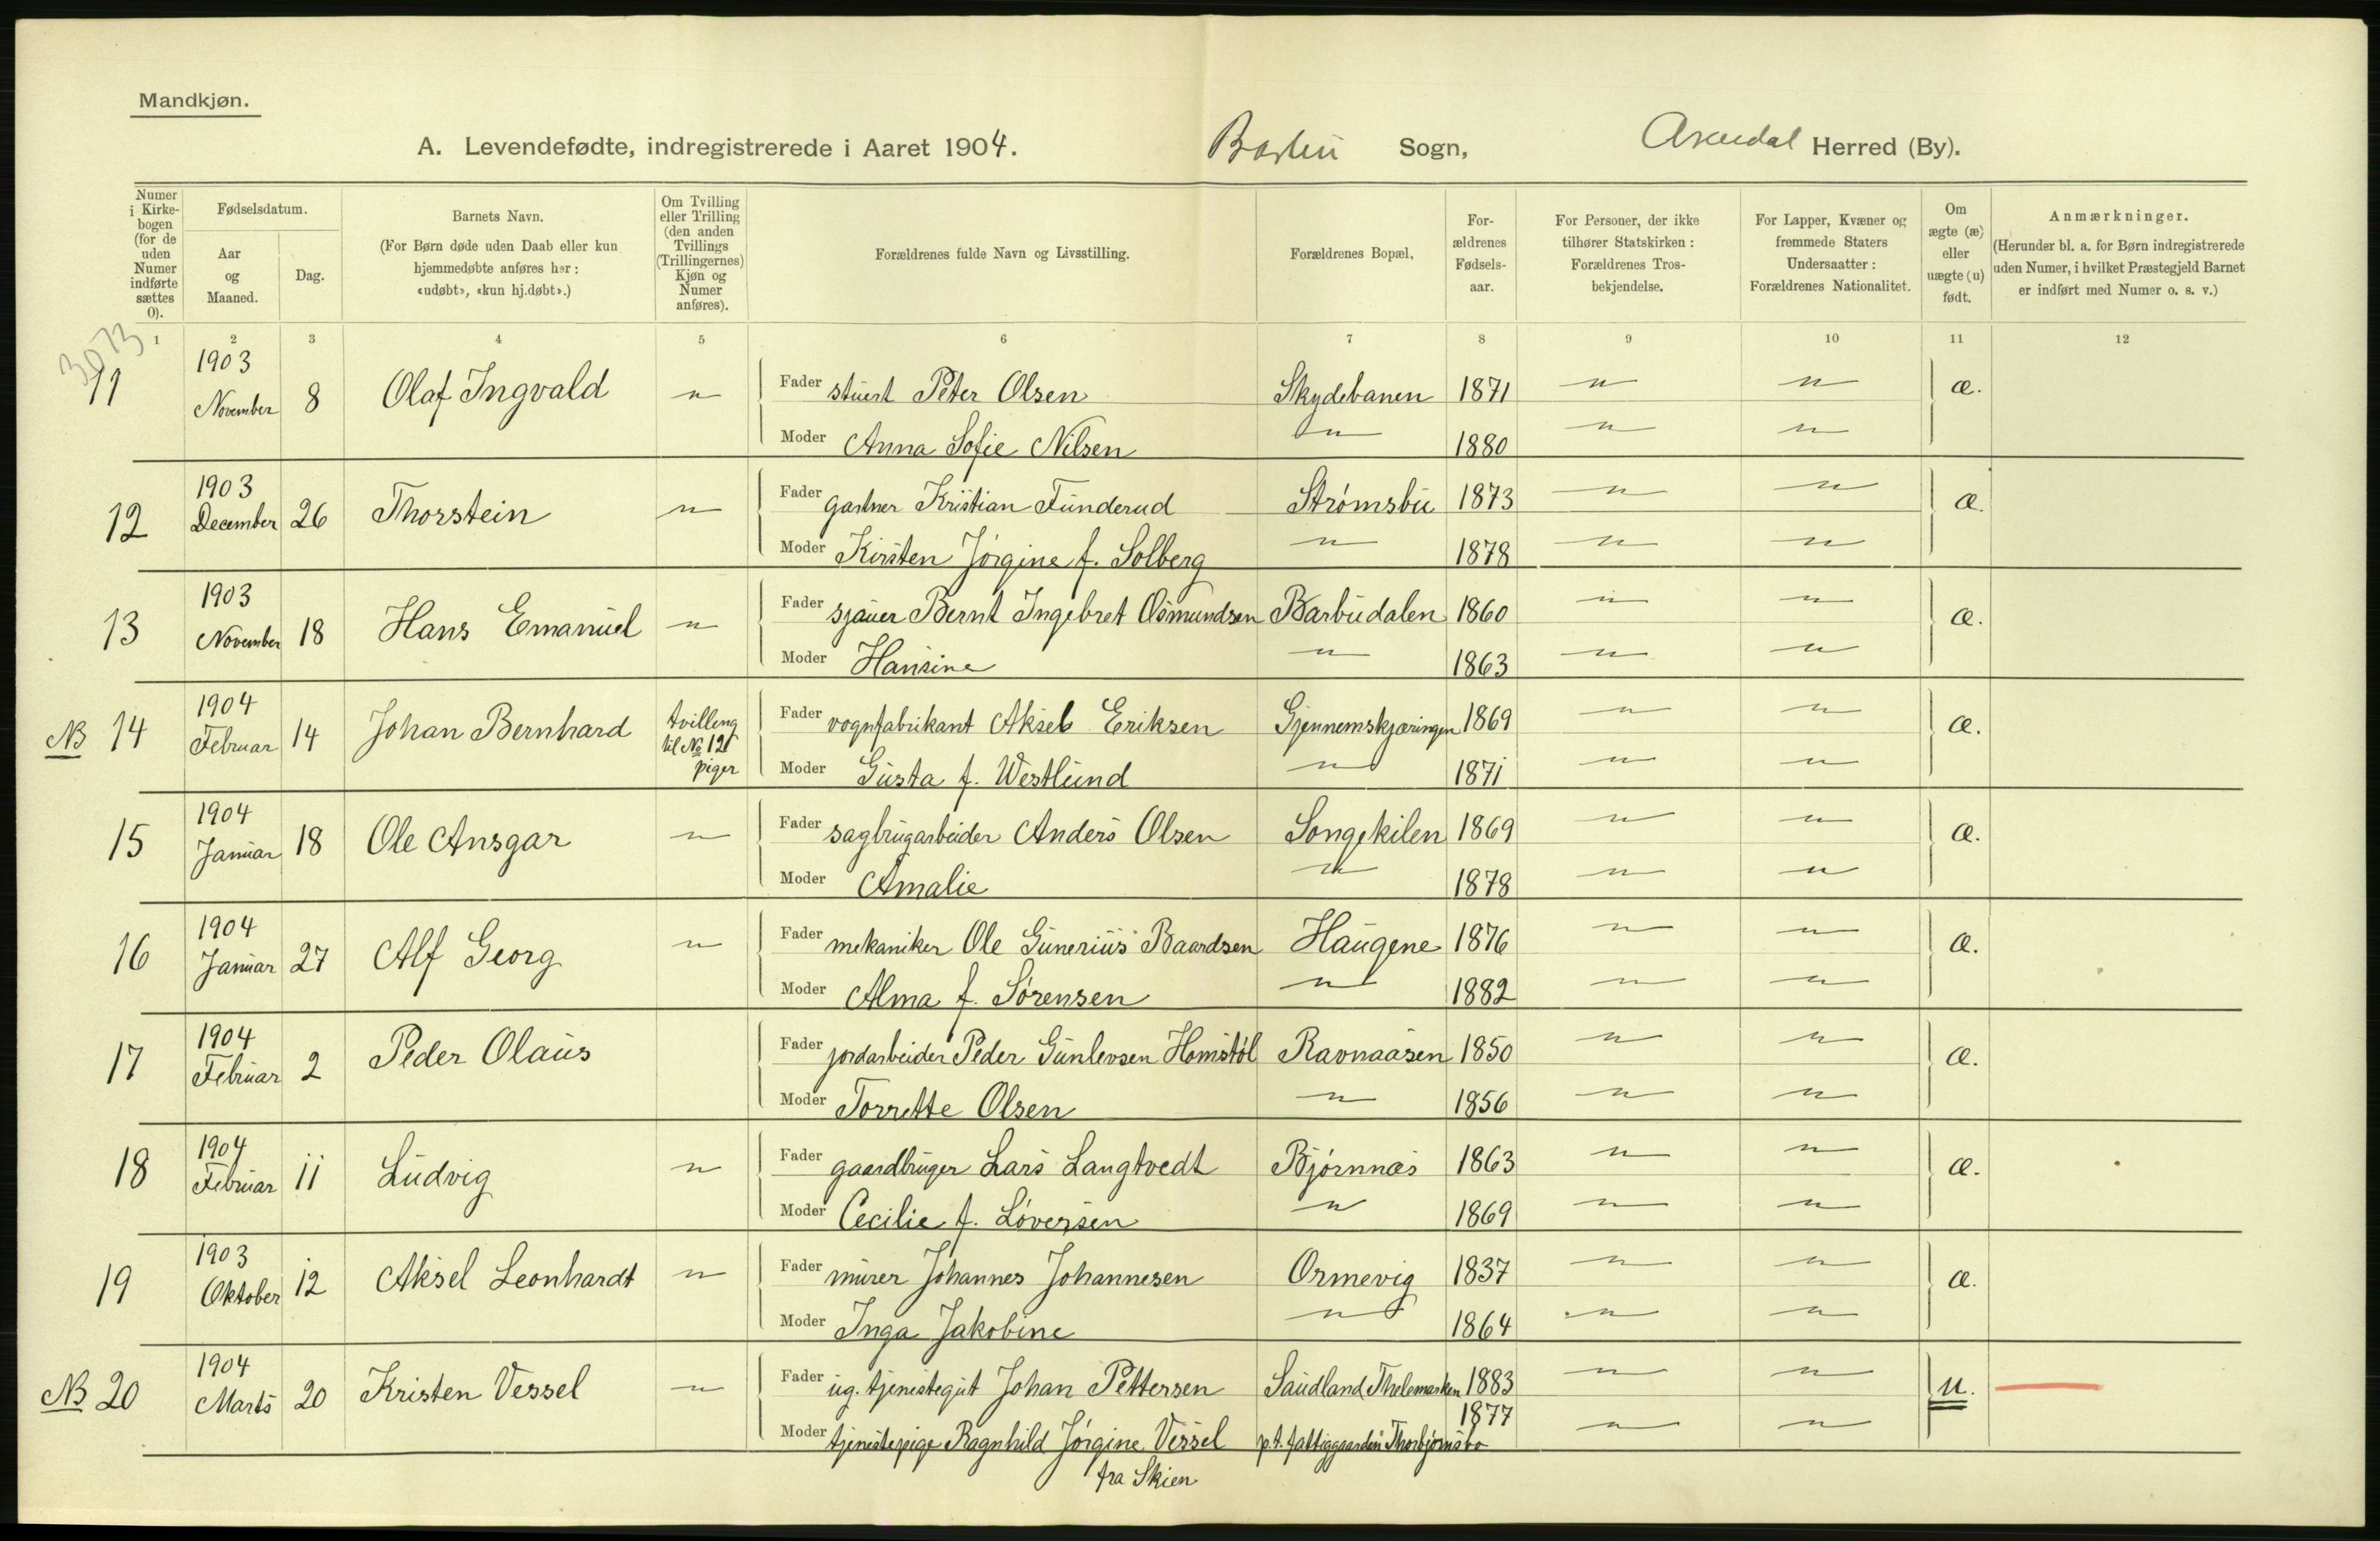 Mandkjøn.
A. Levendefødte, indregistrerede i Aaret 1904. Barbu Sogn, Arendal Herred (By).
Numer i Kirkebogen (for de uden Numer indførte sættes 0).
Fødselsdatum.
Aar og Maaned.
Dag.
Barnets Navn.
(For Børn døde uden Daab eller kun hjemmedøbte anføres her: «udøbt», «kun hj.døbt».)
Om Tvilling eller Trilling (den anden Tvillings (Trillingernes) Kjøn og Numer anføres).
Forældrenes fulde Navn og Livsstilling.
Forældrenes Bopæl,
Forældrenes Fødselsaar.
For Personer, der ikke tilhører Statskirken: Forældrenes Trosbekjendelse.
For Lapper, Kvæner og fremmede Staters Undersaatter: Forældrenes Nationalitet.
Om ægte (æ) eller uægte (u) født.
Anmærkninger.
(Herunder bl. a. for Børn indregistrerede uden Numer, i hvilket Præstegjeld Barnet er indført med Numer o. s. v.)
1 2 3 4 5 6 7 8 9 10 11 12
3073
11 1903 November 8 Olaf Ingvald " Fader stuert Peter Olsen Skydebanen 1871 " " æ.
Moder Anna Sofie Nilsen " 1880 " "
12 1903 December 26 Thorstein " Fader gartner Kristian Funderud Strømsbu 1873 " " æ.
Moder Kirsten Jørgine f. Solberg " 1878 " "
13 1903 November 18 Hans Emanuel " Fader sjauer Bernt Ingebret Osmundsen Barbudalen 1860 " " æ.
Moder Hansine " 1863 " "
NB 14 1904 Februar 14 Johan Bernhard tvilling til No 12 piger Fader vognfabrikant Aksel Eriksen Gjennemskjæringen 1869 " " æ.
Moder Gusta f. Westlund " 1871 " "
15 1904 Januar 18 Ole Ansgar " Fader sagbrugarbeider Anders Olsen Songekilen 1869 " " æ.
Moder Amalie " 1878 " "
16 1904 Januar 27 Alf Georg " Fader mekaniker Ole Gunerius Baardsen Haugene 1876 " " æ.
Moder Alma f. Sørensen " 1882 " "
17 1904 Februar 2 Peder Olaus Fader jordarbeider Peder Gunlevsen Homstøl Ravnaasen 1850 " " æ.
Moder Torrette Olsen " 1856 " "
18 1904 Februar 11 Ludvig " Fader gaardbruger Lars Langtvedt Bjørnnæs 1863 " " æ.
Moder Cecilie f. Løversen " 1869 " "
19 1903 Oktober 12 Aksel Leonhardt " Fader murer Johannes Johannesen Ormevig 1837 " " æ.
Moder Inga Jakobine " 1864 " "
NB 20 1904 Marts 20 Kristen Vessel " Fader ug. tjenestegut Johan Pettersen Saudland Thelemarken 1883 " " u.
Moder tjenestepige Ragnhild Jørgine Vessel p.t. fattiggaarden Thorbjørnsbo 1877 " "
fra Skien